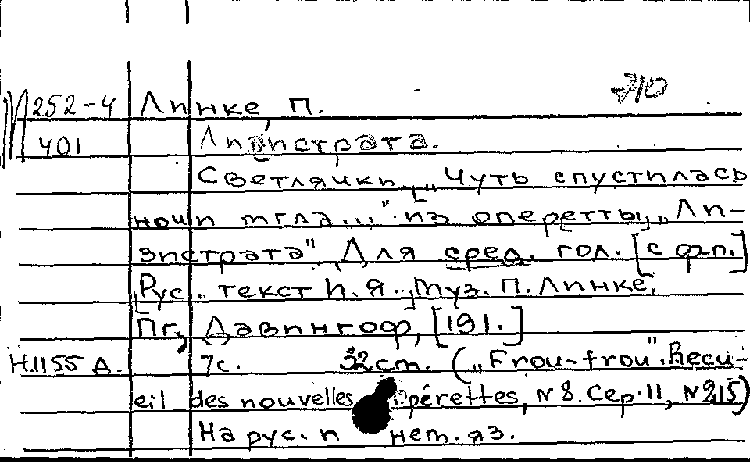 710
252-4 Линке, П.
401 Лизистрата.
Светлячки. „Чуть спустилась
ночи мгла..." из оперетты „Ли-
зистрата". Для сред. гол. [с фп.]
Рус. текст И.Я., муз. П. Линке.
Пг, Давингоф, [191.]
Н.1155 д. 7с. 32 cm. („Frou-frou". Recu-
eil des nouvelles opérettes, N 8. Сер. 11, N 215)
На рус. и нет. яз.